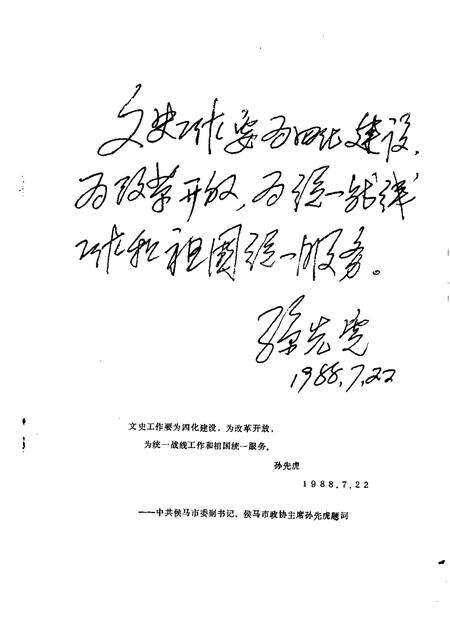 文史工作要为四化建设，
为改革开放，为统一战线
工作和祖国统一服务。
孙先虎
1988.7.22
文史工作要为四化建设，为改革开放，
为统一战线工作和祖国统一服务。
孙先虎
1988.7.22
——中共侯马市委副书记、侯马市政协主席孙先虎题词